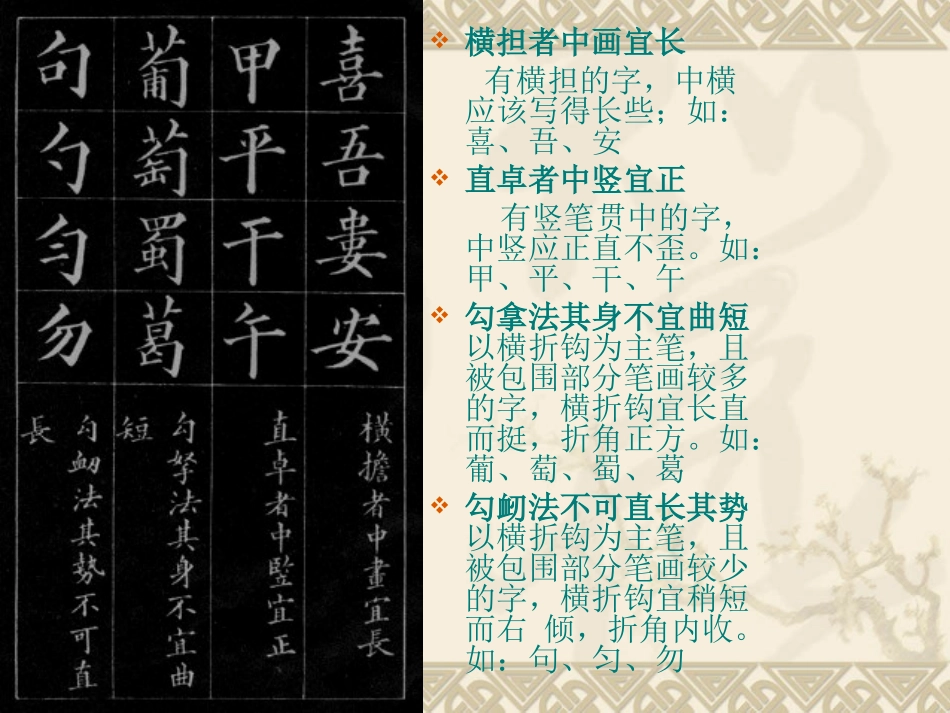 喜
吾
婁
安
橫擔者中畫宜長
甲
平
干
午
直卓者中竪宜正
葡
萄
蜀
葛
勾拏法其身不宜曲
短
句
勺
匀
勿
勾衂法其勢不可直
長
横担者中画宜长
有横担的字，中横
应该写得长些；如：
喜、吾、安
直卓者中竖宜正
有竖笔贯中的字，
中竖应正直不歪。如：
甲、平、干、午
勾拿法其身不宜曲短
以横折钩为主笔，且
被包围部分笔画较多
的字，横折钩宜长直
而挺，折角正方。如：
葡、萄、蜀、葛
勾衂法不可直长其势
以横折钩为主笔，且
被包围部分笔画较少
的字，横折钩宜稍短
而右 倾，折角内收。
如：句、匀、勿